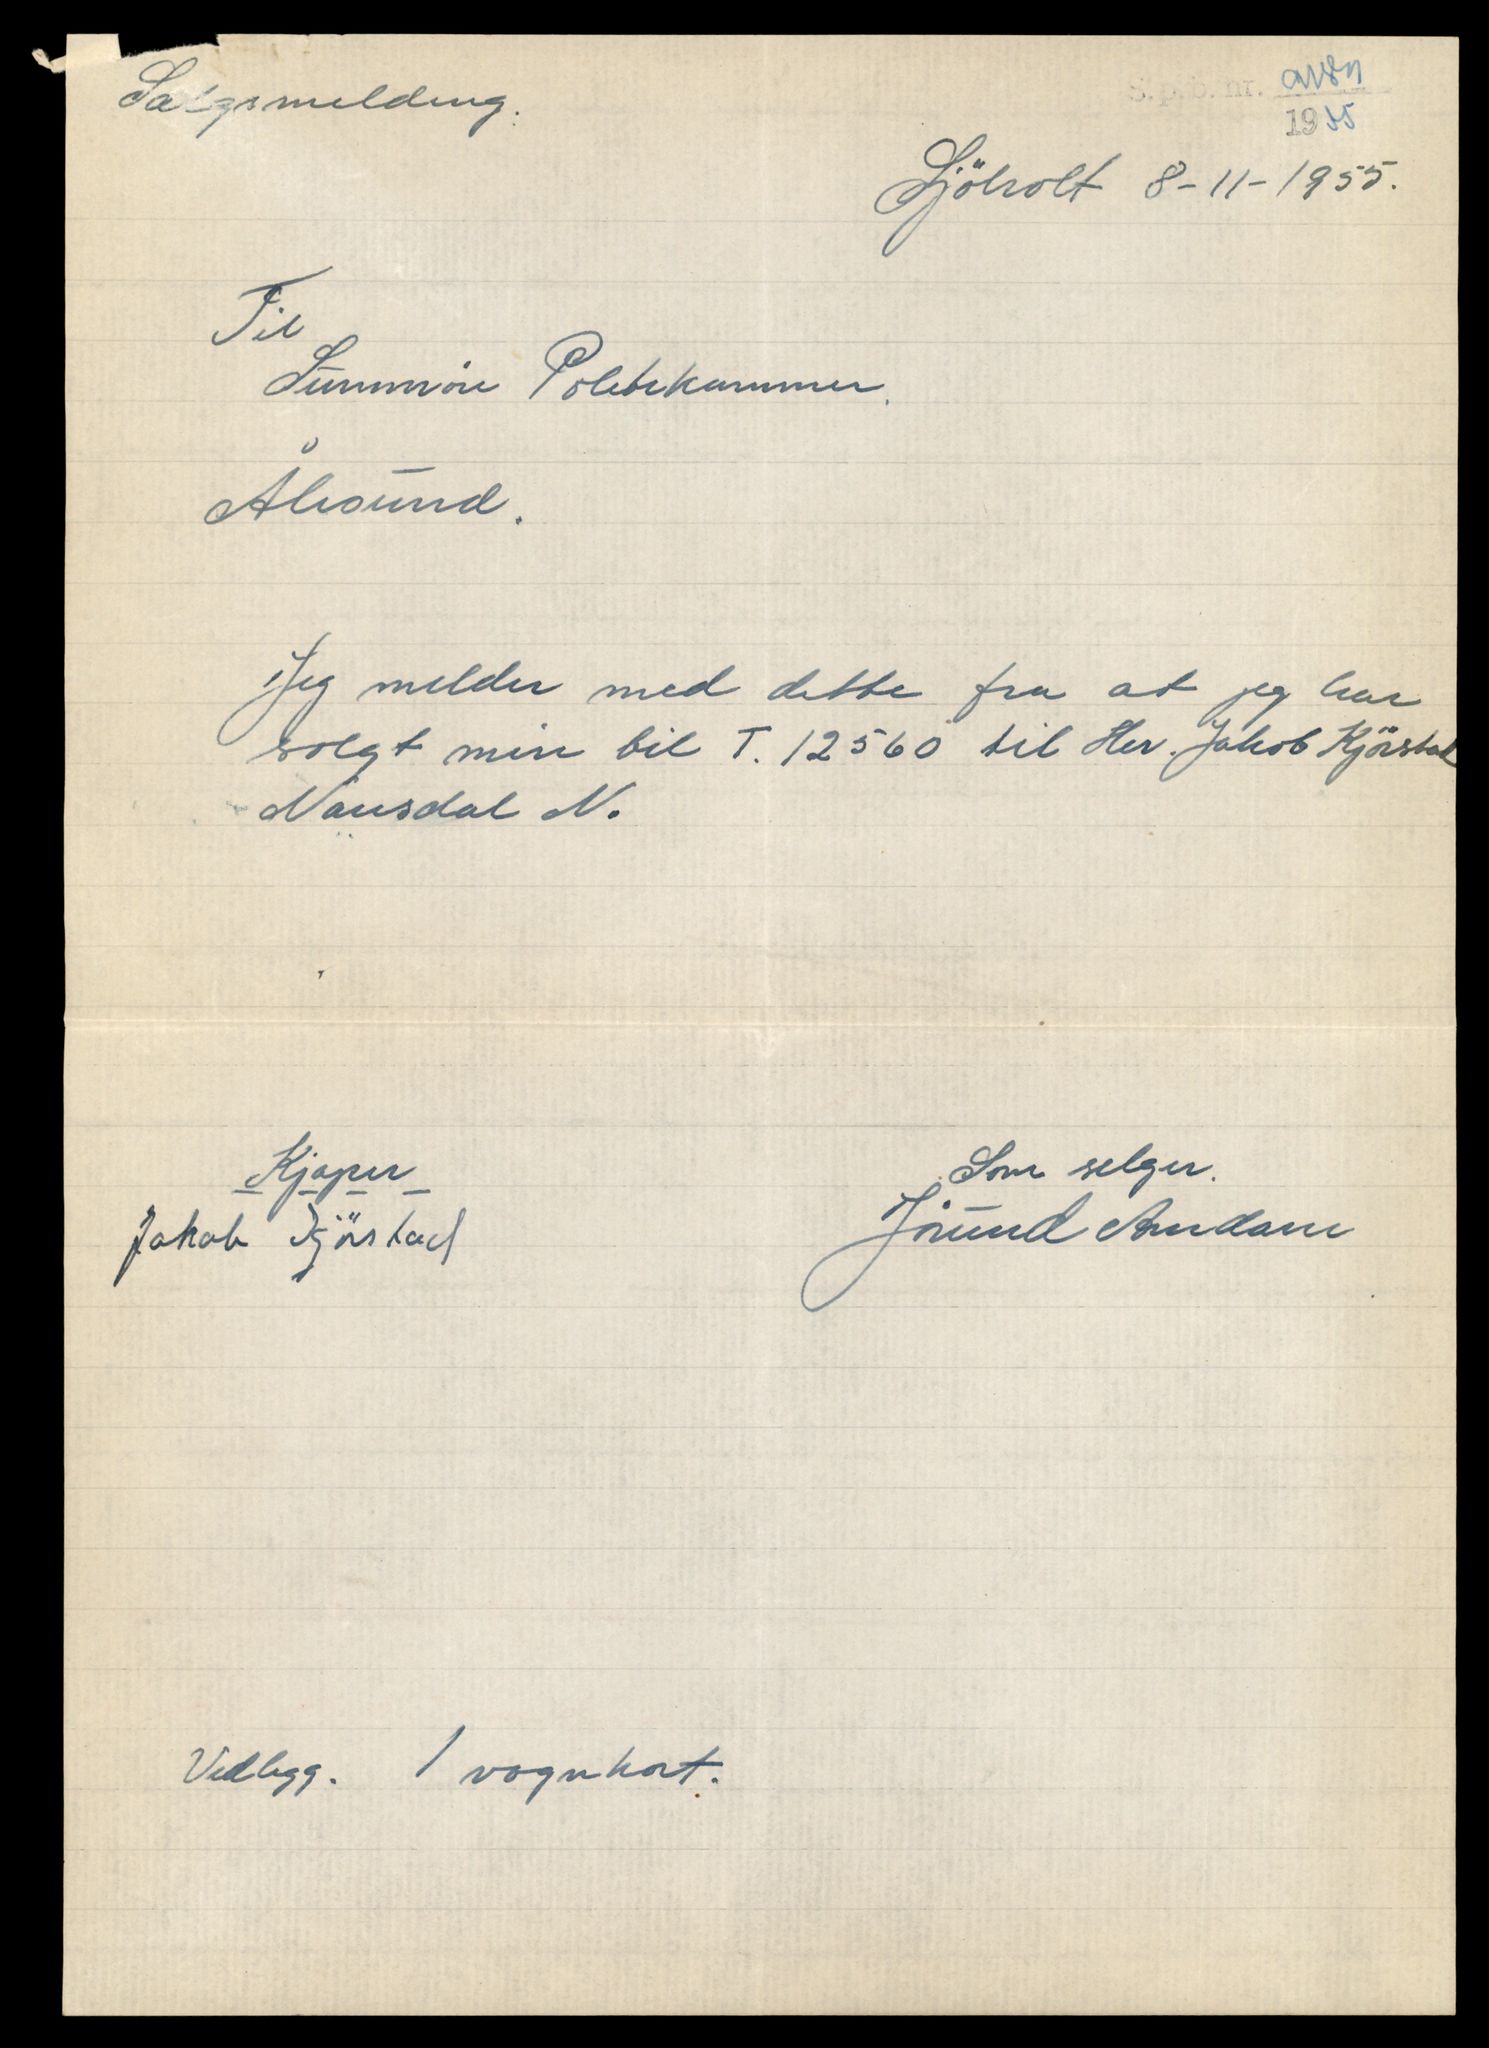 Salgsmelding.
S. p. b. nr.
1955
Sjöholt 8-11-1955.
Til
Sunnmöre Politikammer.
Ålesund.
Jeg melder med dette fra at jeg har
solgt min bil T. 12560 til Her. Jakob Kjörstad
Nausdal N.
Kjøper
Som selger.
Jakob Kjörstad
Jörund Amdam
Vedlegg. 1 vognkort.